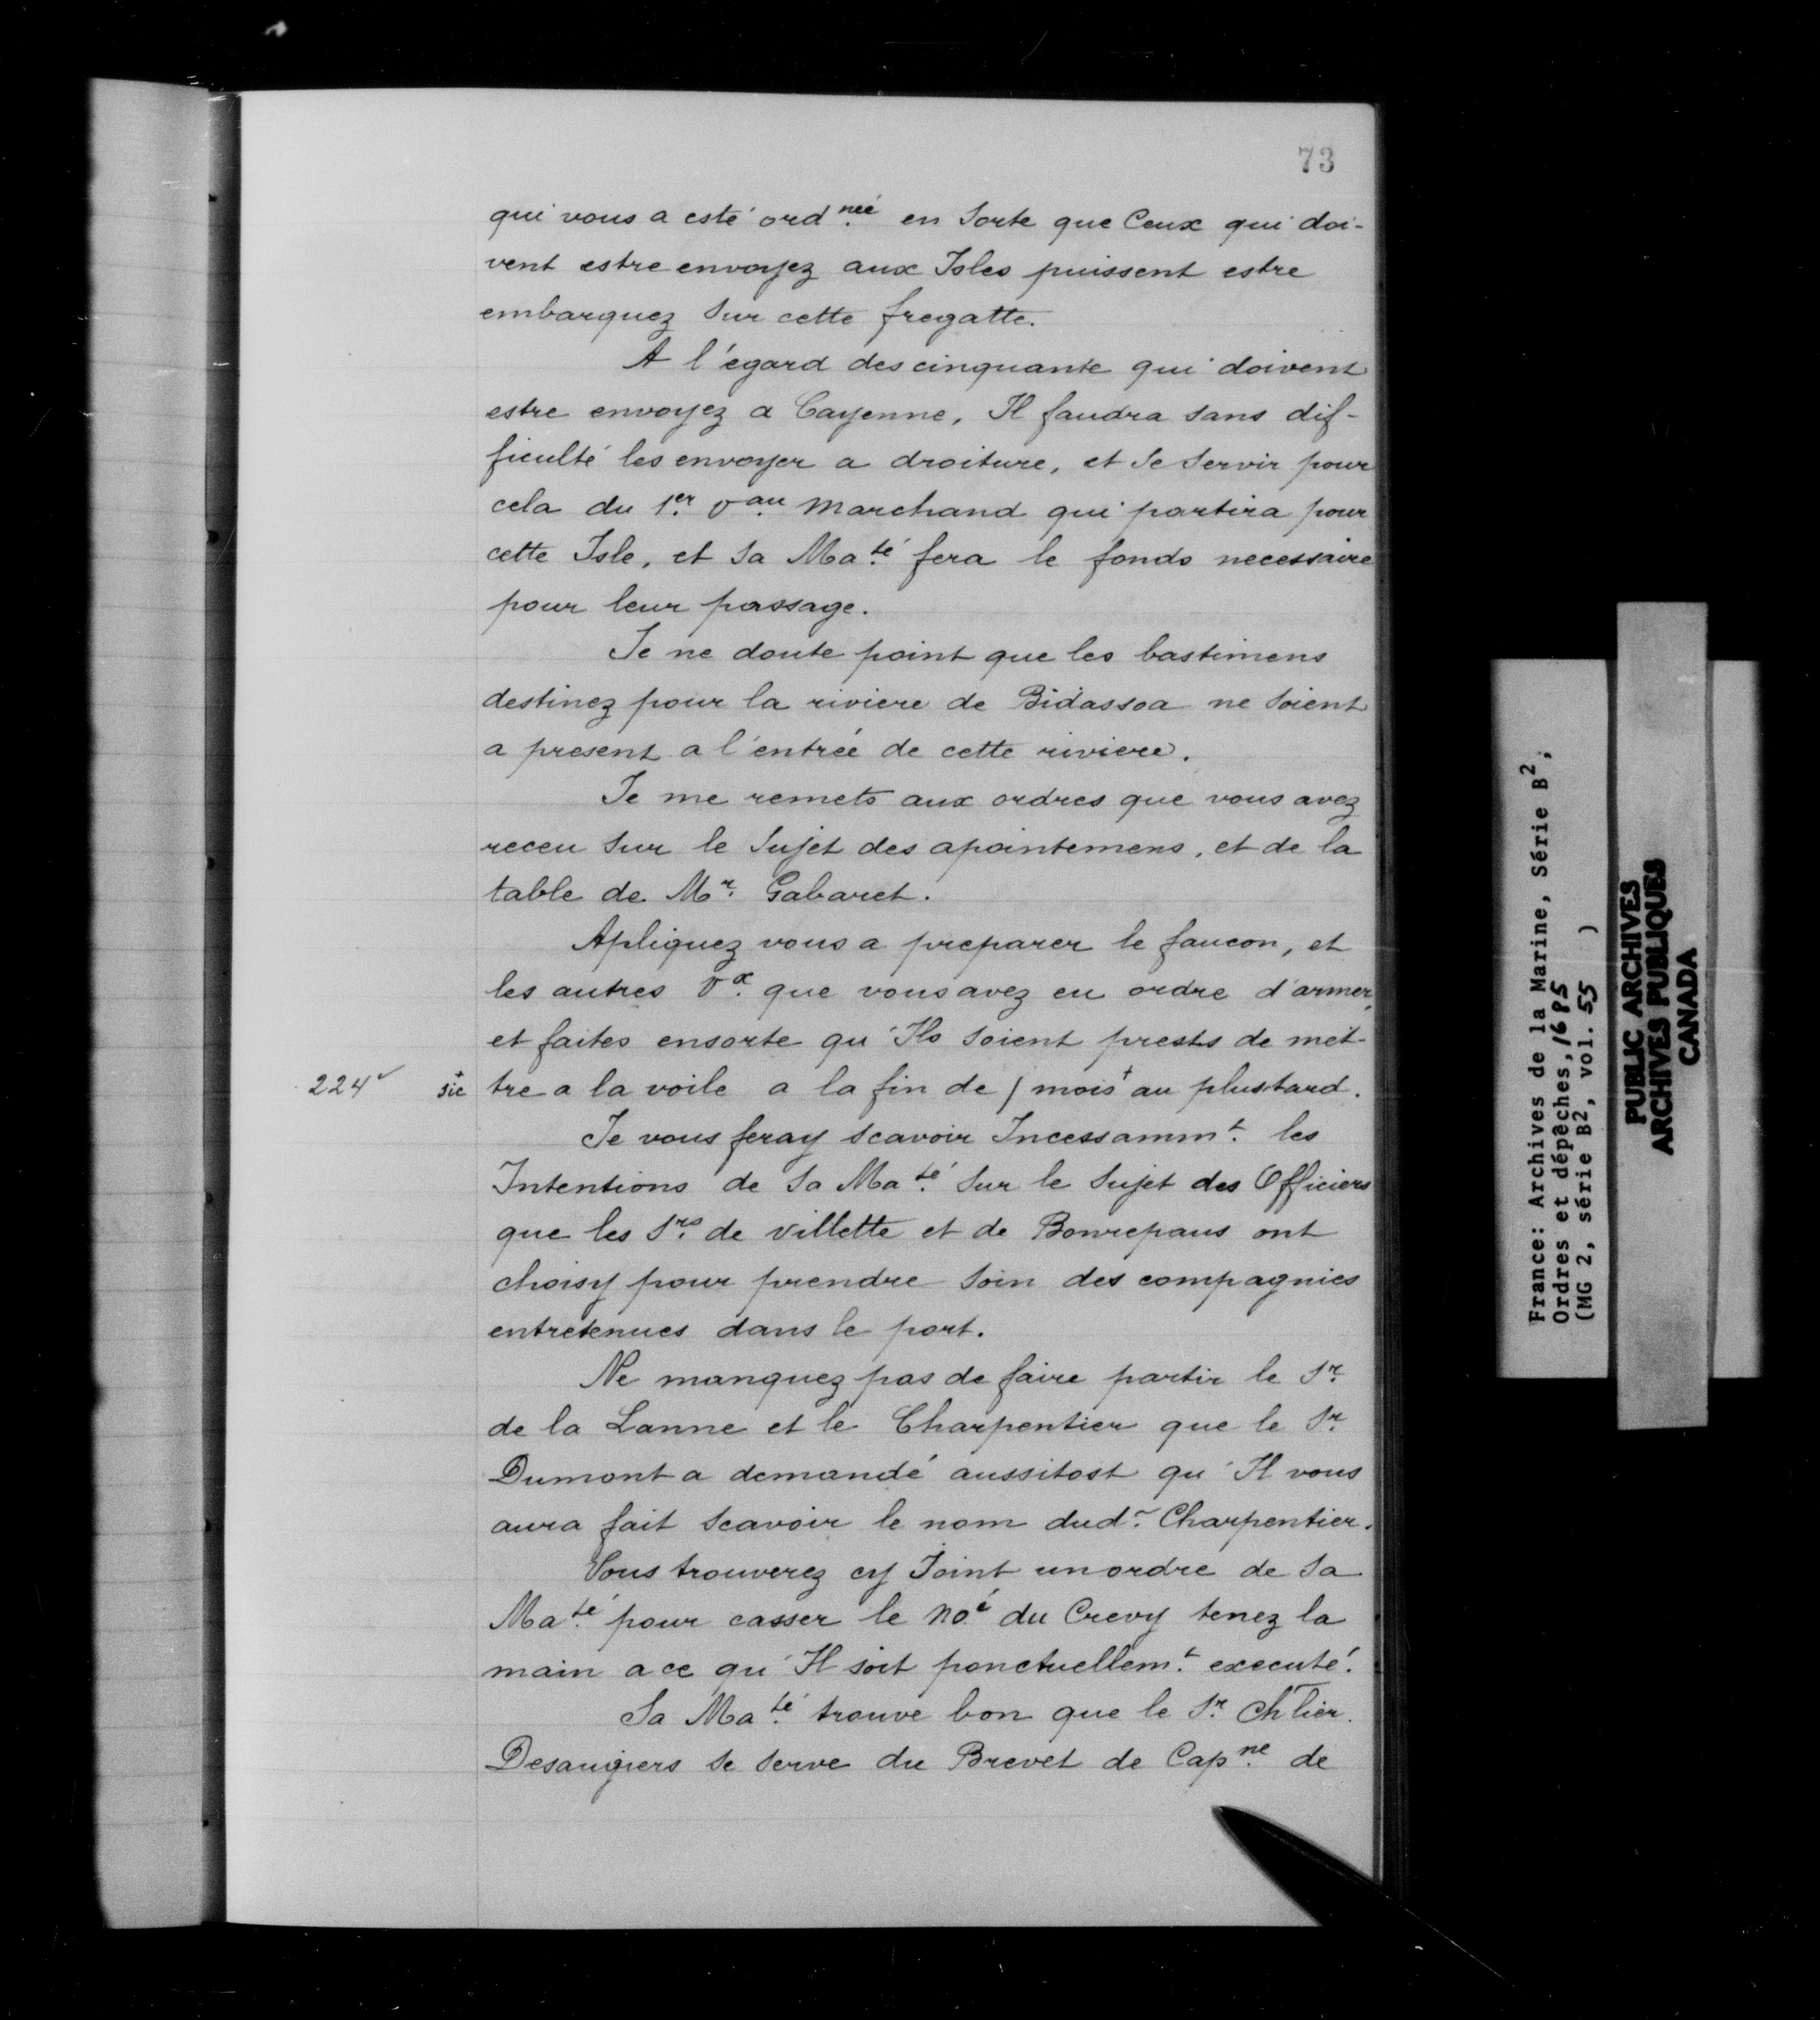 73
qui vous a esté ord.née en Sorte que Ceux qui doi-
vent estre envoyez aux Isles puissent estre
embarquez Sur cette fregatte.
A l'égard des cinquante qui doivent
estre envoyez a Cayenne, Il faudra sans dif-
ficulté les envoyer a droiture, et Se Servir pour
cela du 1.er v.au Marchand qui partira pour
cette Isle, et Sa Ma.té fera le fonds necessaire
pour leur passage.
Je ne doute point que les bastimens
destinez pour la riviere de Bidassoa ne Soient
a present a l'entrée de cette riviere.
Je me remets aux ordres que vous avez
receu Sur le Sujet des apointemens, et de la
table de M.r Gabaret.
Apliquez vous a preparer le faucon, et
les autres V.x que vous avez eu ordre d'armer,
et faites ensorte qu'Ils Soient prests de met-
224v + sic tre a la voile a la fin de / mois+ au plustard.
Je vous feray Scavoir Incessamm.t les
Intentions de Sa Ma.té Sur le Sujet des Officiers
que les S.rs de Villette et de Bonrepaus ont
choisy pour prendre Soin des compagnies
entretenues dans le port.
Ne manquez pas de faire partir le S.r
de la Lanne et le Charpentier que le S.r
Dumont a demandé aussitost qu'Il vous
aura fait Scavoir le nom dud. Charpentier.
Vous trouverez cy Joint un ordre de Sa
Ma.té pour casser le No.é du Crevy tenez la
main a ce qu'Il soit ponctuellem.t executé.
Sa Ma.té trouve bon que le S.r Ch'lier.
Desaugiers Se Serve du Brevet de Cap.ne de
France: Archives de la Marine, Série B2,
Ordres et dépêches, 1685
(MG 2, série B2, vol. 55 )
PUBLIC ARCHIVES
ARCHIVES PUBLIQUES
CANADA